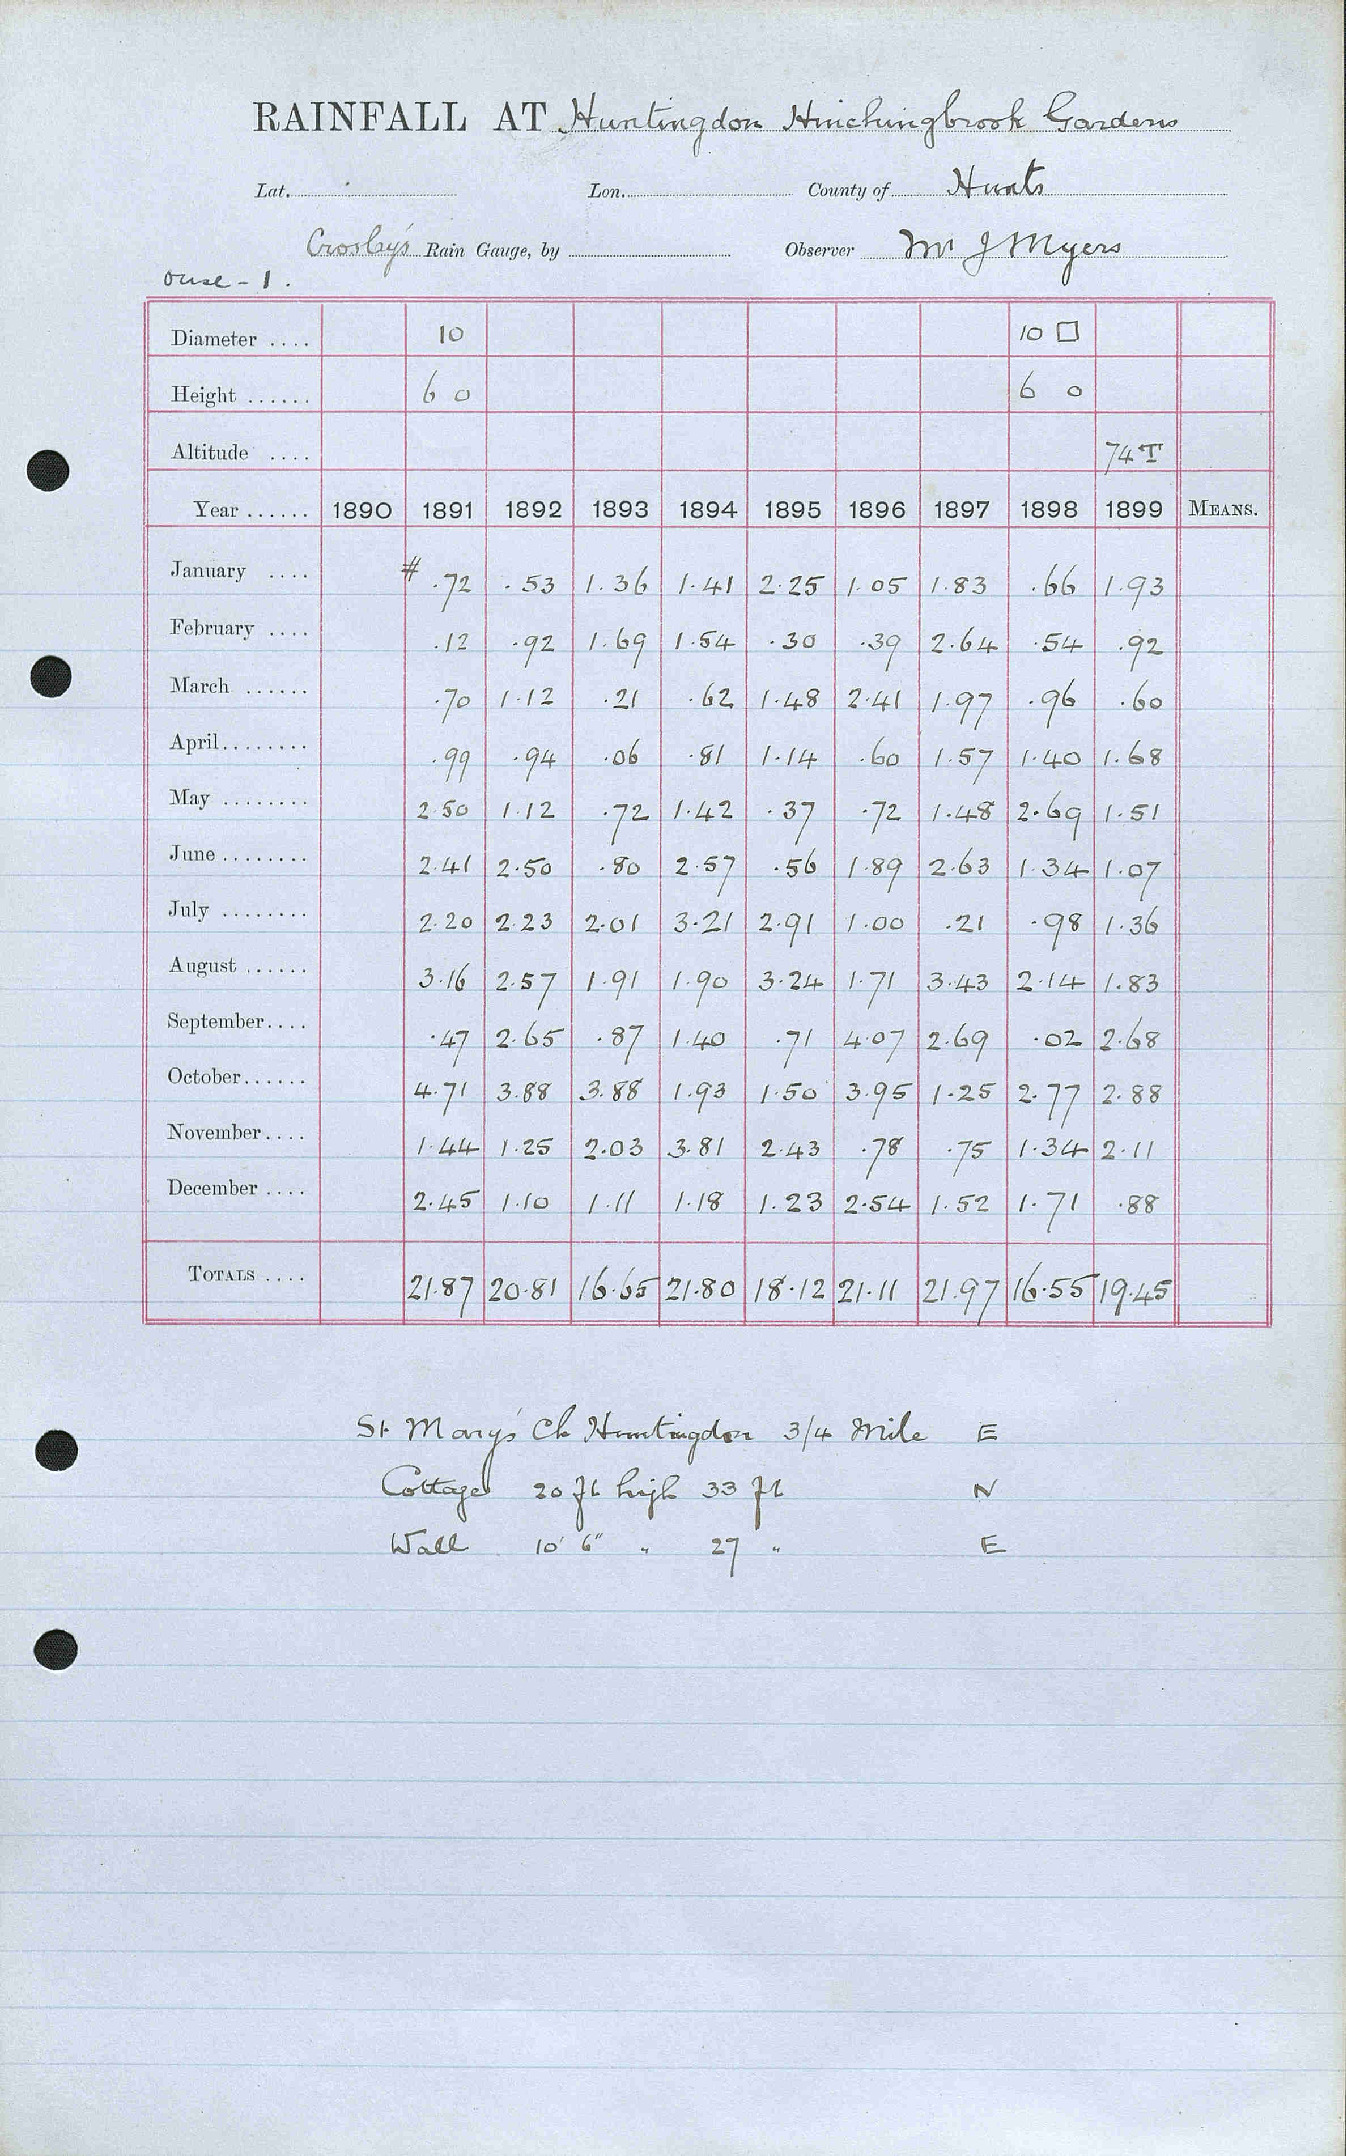 RAINFALL AT Huntingdon Hinchingbrook Gardens
Lat. Lon. County of Hunts
Crosley's Rain Gauge, by Observer Mr J Myers
Ouse - 1.
Diameter .... 10 10 □
Height ...... 6 0 6 0
Altitude .... 74 T
Year ...... 1890 1891 1892 1893 1894 1895 1896 1897 1898 1899 MEANS.
January .... # .72 .53 1.36 1.41 2.25 1.05 1.83 .66 1.93
February .... .12 .92 1.69 1.54 .30 .39 2.64 .54 .92
March ...... .70 1.12 .21 .62 1.48 2.41 1.97 .96 .60
April........ .99 .94 .06 .81 1.14 .60 1.57 1.40 1.68
May ........ 2.50 1.12 .72 1.42 .37 .72 1.48 2.69 1.51
June ........ 2.41 2.50 .80 2.57 .56 1.89 2.63 1.34 1.07
July ........ 2.20 2.23 2.01 3.21 2.91 1.00 .21 .98 1.36
August ...... 3.16 2.57 1.91 1.90 3.24 1.71 3.43 2.14 1.83
September.... .47 2.65 .87 1.40 .71 4.07 2.69 .02 2.68
October...... 4.71 3.88 3.88 1.93 1.50 3.95 1.25 2.77 2.88
November.... 1.44 1.25 2.03 3.81 2.43 .78 .75 1.34 2.11
December .... 2.45 1.10 1.11 1.18 1.23 2.54 1.52 1.71 .88
TOTALS .... 21.87 20.81 16.65 21.80 18.12 21.11 21.97 16.55 19.45
St Mary's Ch Huntingdon 3/4 Mile E
Cottages 20 ft high 33 ft N
Wall 10' 6" " 27 " E